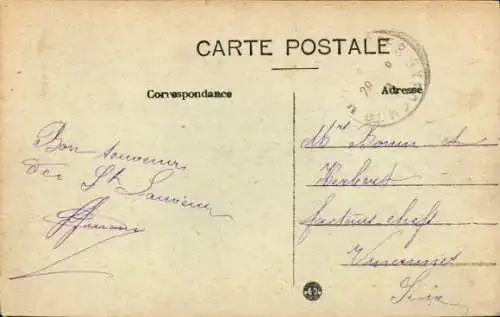 CARTE POSTALE
Correspondance
Adresse
Bon souvenir
de St Sauveur
Mrs Bonin et
Herbert
facteurs chefs
Vincennes
Seine